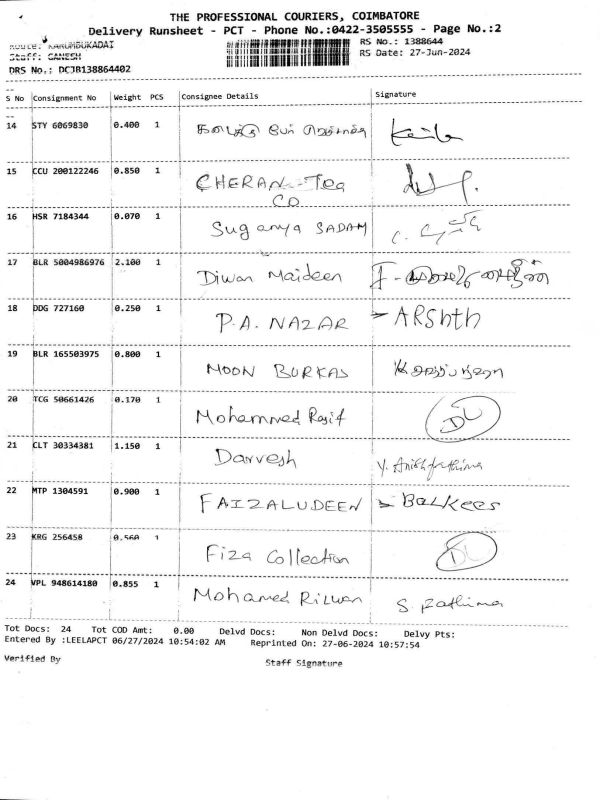 THE PROFESSIONAL COURIERS, COIMBATORE
Delivery Runsheet - PCT - Phone No.:0422-3505555 - Page No.:2
Route: KARUMBUKADAI
RS No.: 1388644
Staff: GANESH
RS Date: 27-Jun-2024
DRS No.: DCJB138864402
S No Consignment No Weight PCS Consignee Details Signature
14 STY 6069830 0.400 1
15 CCU 200122246 0.850 1 CHERAN Tea
CO
16 HSR 7184344 0.070 1 Suganya SADAM
17 BLR 5004986976 2.100 1 Diwan Maideen
18 DDG 727160 0.250 1 P.A. NAZAR ARShth
19 BLR 165503975 0.800 1 MOON BURKAS
20 TCG 50661426 0.170 1 Mohammed Rasif DL
21 CLT 30334381 1.150 1 Darvesh Y. Anishfathima
22 MTP 1304591 0.900 1 FAIZALUDEEN Balkees
23 KRG 256458 0.560 1 Fiza Collection DL
24 VPL 948614180 0.855 1 Mohamed Rizwan S. Fathima
Tot Docs: 24 Tot COD Amt: 0.00 Delvd Docs: Non Delvd Docs: Delvy Pts:
Entered By :LEELAPCT 06/27/2024 10:54:02 AM Reprinted On: 27-06-2024 10:57:54
Verified By Staff Signature